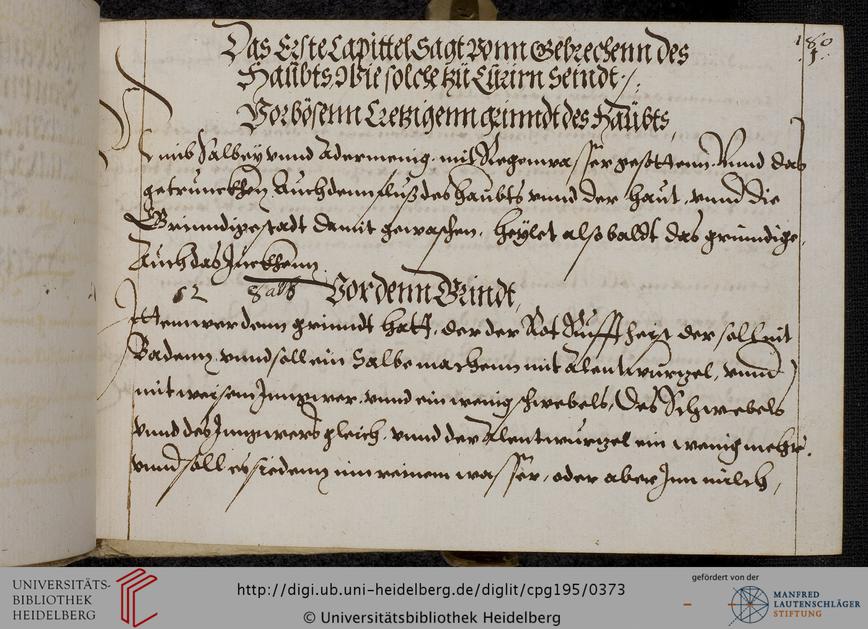 180
Das Erste Capittel Sagt vonn Gebrechenn des
Haubts, Wie solche zu Curirn Seindt /:
Vor bösenn Cretzigenn grinndt des Haubts,
Nimb Salbey vnnd Adermenig, mit Regenwasser gesottenn, Vnnd das
getrunckhen, Auch denn fluß des haubts vnnd der haut, vnnd die
Grinndige stadt damit gewaschen, heylet alßbaldt das grindige,
Auch das Juckhenn
12 Salb Vor denn Grindt,
Ittem wer denn grinndt hatt, der der Rot heist der soll mit
Badenn, vnnd soll ein Salbe machenn mit Alentwurtzel, vnnd
mit weisem Inngwer, vnnd ein wenig schwebels, Des Schwebels
vnnd des Inngwers gleich, vnnd der Alentwurtzel ein wenig mehr,
vnnd soll es siedenn inn reinem wasser, oder aber Inn milch,
UNIVERSITÄTS-
BIBLIOTHEK
HEIDELBERG
http://digi.ub.uni-heidelberg.de/diglit/cpg195/0373
© Universitätsbibliothek Heidelberg
gefördert von der
MANFRED
LAUTENSCHLÄGER
STIFTUNG